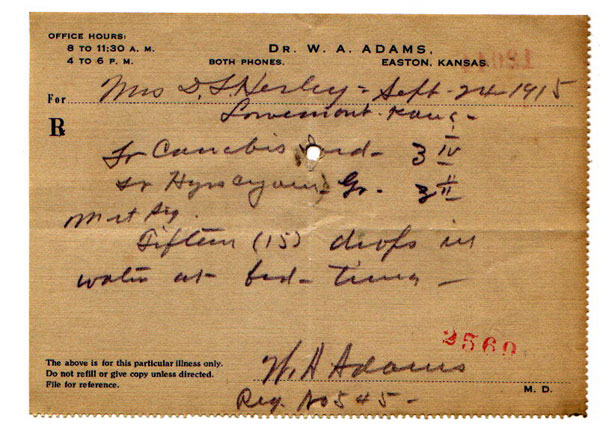 OFFICE HOURS:
8 TO 11:30 A. M.
4 TO 6 P. M.
DR. W. A. ADAMS,
BOTH PHONES. EASTON, KANSAS.
For Mrs D. L. - Sept - 24 - 1915
Lowemont - Kans -
℞
Tr Canabis Ind - ʒ IV
Tr Hyoscyami - Gr. ʒ II
M et Sig.
Fifteen (15) drops in
water at bed - time -
2569
The above is for this particular illness only.
Do not refill or give copy unless directed.
File for reference.
W. A Adams
M. D.
Reg. No 545 -